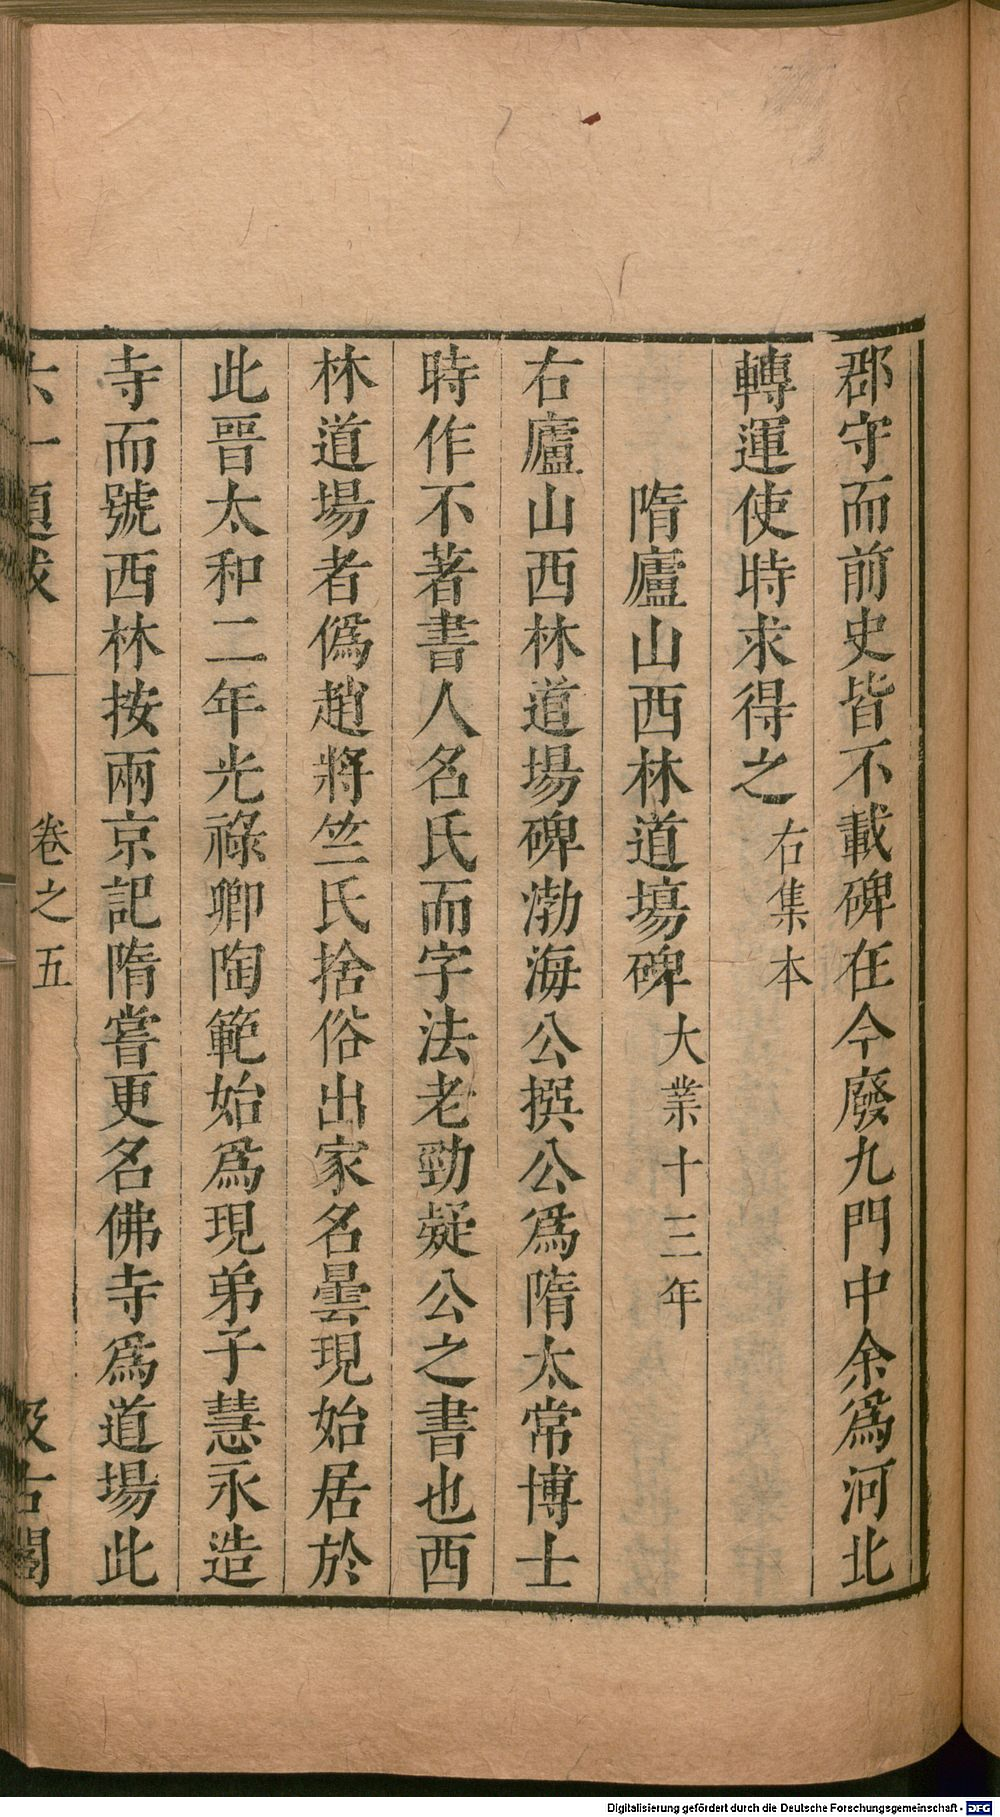 郡守而前史皆不載碑在今廢九門中余爲河北
轉運使時求得之 右集本
隋廬山西林道場碑 大業十三年
右廬山西林道場碑渤海公撰公爲隋太常博士
時作不著書人名氏而字法老勁疑公之書也西
林道場者僞趙將竺氏捨俗出家名曇現始居於
此晉太和二年光祿卿陶範始爲現弟子慧永造
寺而號西林按兩京記隋嘗更名佛寺爲道場此
六一題跋 卷之五 汲古閣
Digitalisierung gefördert durch die Deutsche Forschungsgemeinschaft - DFG